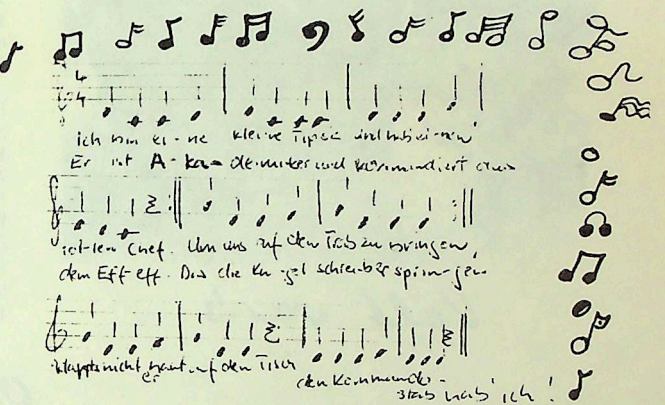 4
4
ich bin ei-ne kleine Tipse und hab' ei-nen
Er ist A-ka-demiker und kommandiert aus
Chef. Um uns auf den Trab zu bringen,
dem Eff-eff. Das die Ku-gelschreiber sprin-gen.
klappts nicht haut er auf den Tisch
den Kommando-
stab hab' ich!